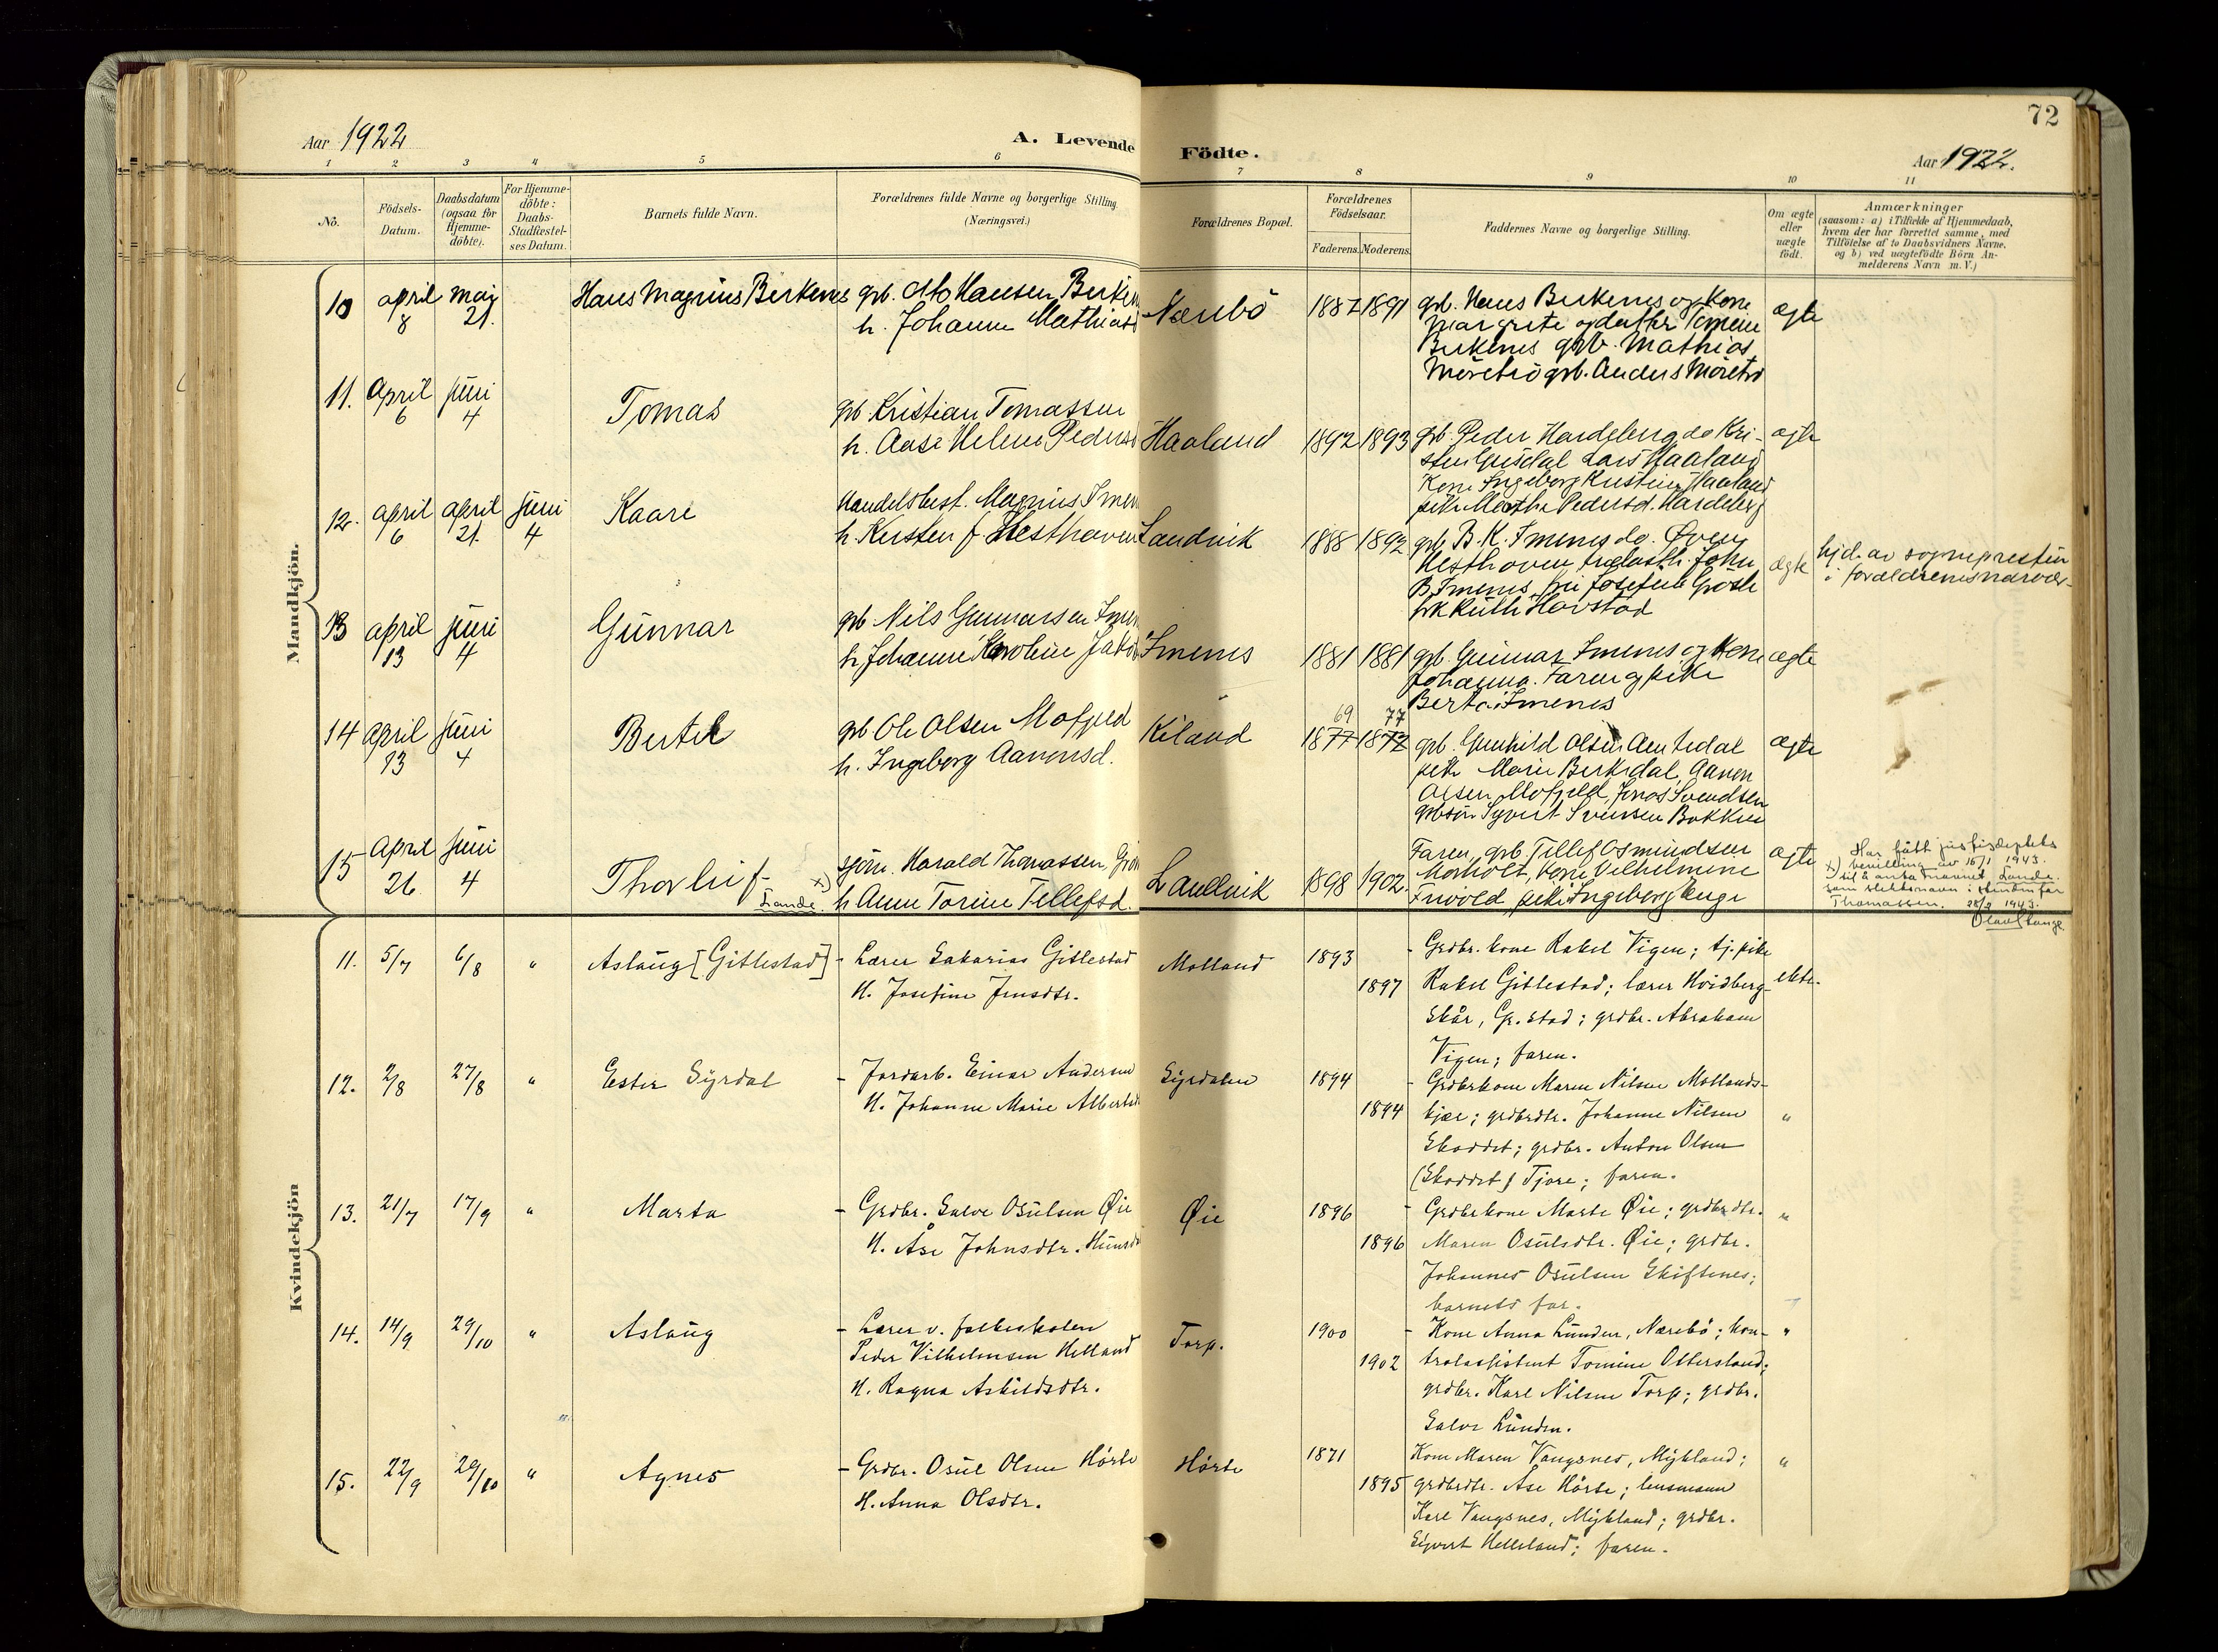 72
Aar 1922
A. Levende Födte.
Aar 1922.
1 2 3 4 5 6 7 8 9 10 11
No.
Födsels-Datum.
Daabsdatum (ogsaa for Hjemme-döbte).
For Hjemme-döbte: Daabs-Stadfæstel-ses Datum.
Barnets fulde Navn.
Forældrenes fulde Navne og borgerlige Stilling.
(Næringsvei.)
Forældrenes Bopæl.
Forældrenes Födselsaar.
Faderens. Moderens.
Faddernes Navne og borgerlige Stilling.
Om ægte eller uægte födt.
Anmærkninger
(saasom: a) i Tilfælde af Hjemmedaab,
hvem der har forrettet samme, med
Tilföielse af to Daabsvidners Navne,
og b) ved uægtefödte Börn An-
melderens Navn m. V.)
Mandkjön.
10 april 8 mai 21. Hans Magnus Birkenes grb. Otto Hansen Birken
h. Johanne Mathiasd
Nærebö 1882 1891 grb. Hans Birkenes og Kone
Margrete og datter Tomine
Birkenes grb. Mathias
Möretrö grb. Anders Möretrö
ægte
11. April 6 juni 4 Tomas grb. Kristian Tomassen
h. Aase Helene Pedersd
Haaland 1892 1893 grb. Peder Hardeberg do Kri-
sten Lars Haaland
Kone Ingeborg Kristine Haaland
pike Martha Pedersd. Hardeberg
ægte
12. april 6 april 21. juni 4 Kaare Handelsbest. Magnus Imen
h. Kirsten f. Hesthaven
Landvik 1888 1892 grb B. K. Imenes do. Øven
Hesthaven John
B. Imenes, fru Josefine
frk Ruth Havstad
ægte
hjd. av sognepresten
i forældrenes nærvær-
13 april 13 juni 4 Gunnar grb Nils Gunnarsen Imen
h. Johanne Karoline Jako
Imenes 1881 1881 grb. Gunnar Imenes og Kone
Johanna. Faren og pike
Berta Imenes
ægte
14 april 13 juni 4 Bertel grb Ole Olsen Mofjeld
h. Ingeborg Aanonsd.
Kiland 69 77
1877 1872 grb. Gunhild Olsen
pike Marie Birkedal, Aanon
Olsen Mofjeld, Jens Svendsen
grbsön Syvert Svensen Bakken
ægte
15 April 26 juni 4 Thorleif x)
Lande.
sjöm. Harald Thomassen,
h Anne Torine Tellefsd.
Landvik 1898 1902. Faren, grb. Tellef Osmundsen
Morholt, Kone Vilhelmine
pike Ingeborg Lunge
ægte
Har fått justisdeptets
x) bevilling av 15/1 1943.
til å anta navnet Lande
som slektsnavn i stedenfor
Thomassen. 28/2 1943.
Olav Stange
Kvindekjön
11. 5/7 6/8 " Aslaug [Gitlestad] - Lærer Sakarias Gitlestad
H. Josefine Jensdtr.
Molland 1893 1897 - Grdbr. kone Rakel Vigen; tj. pike
Rakel Gitlestad; lærer Hvidberg-
Skår, Gr.stad; grdbr. Abraham
Vigen; faren.
ekte.
12. 2/8 27/8 " Ester Syrdal - Jordarb. Einar Andersen
H. Johanne Marie Albertsd
Syrdalen 1894 1894 - Grdbrkone Maren Nilsen Mollands-
kjær; grdbrdtr. Johanne Nilsen
Skoddet; grdbr. Anton Olsen
(Skoddet) Tjore; faren.
"
13. 21/7 17/9 " Marta - Grdbr. Salve Osulsen Øie
H. Åse Johnsdtr.
Øie 1896 1896 - Grdbrkone Marte Øie; grdbrdtr.
Maren Osulsdtr. Øie; grdbr.
Johannes Osulsen Skiftenes;
barnets far.
"
14. 14/9 29/10 " Aslaug - Lærer v. folkeskolen
Peder Vilhelmsen Helland
H. Ragna Askildsdtr.
Torp. 1900 1902 - Kone Anna Lunden, Nærebö; kon-
trolassistent Tomine Ottersland;
grdbr. Karl Nilsen Torp; grdbr.
Salve Lunden.
"
15. 22/9 29/10 " Agnes - Grdbr. Osul Olsen Hörte
H. Anna Olsdtr.
Hörte 1871 1895 Kone Maren Vangsnes, Mykland;
grdbrdtr. Åse Hörte; lensmann
Karl Vangsnes, Mykland; grdbr.
Sigvert Helleland; faren.
"